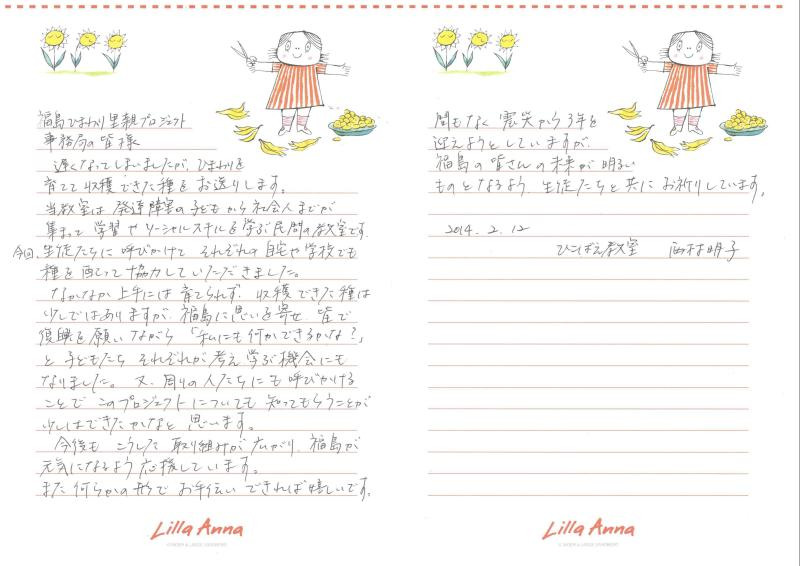 福島ひまわり里親プロジェクト
事務局の皆様
遅くなってしまいましたが、ひまわりを
育てて収穫できた種をお送りします。
当教室は発達障害の子どもから社会人までが
集まって学習やソーシャルスキルを学ぶ民間の教室です。
今回、生徒たちに呼びかけてそれぞれの自宅や学校でも
種を配って協力していただきました。
なかなか上手には育てられず、収穫できた種は
少しではありますが、福島に思いを寄せ、皆で
復興を願いながら「私にも何かできるかな?」
と子どもたちそれぞれが考え学ぶ機会にも
なりました。又、周りの人たちにも呼びかける
ことでこのプロジェクトについても知ってもらうことが
少しはできたかなと思います。
今後もこうした取り組みが広がり、福島が
元気になるよう応援しています。
また何らかの形でお手伝いできれば嬉しいです。
Lilla Anna
間もなく震災から3年を
迎えようとしていますが、
福島の皆さんの未来が明るい
ものとなるよう、生徒たちと共にお祈りしています。
2014.2.12
ひこばえ教室 西村明子
Lilla Anna